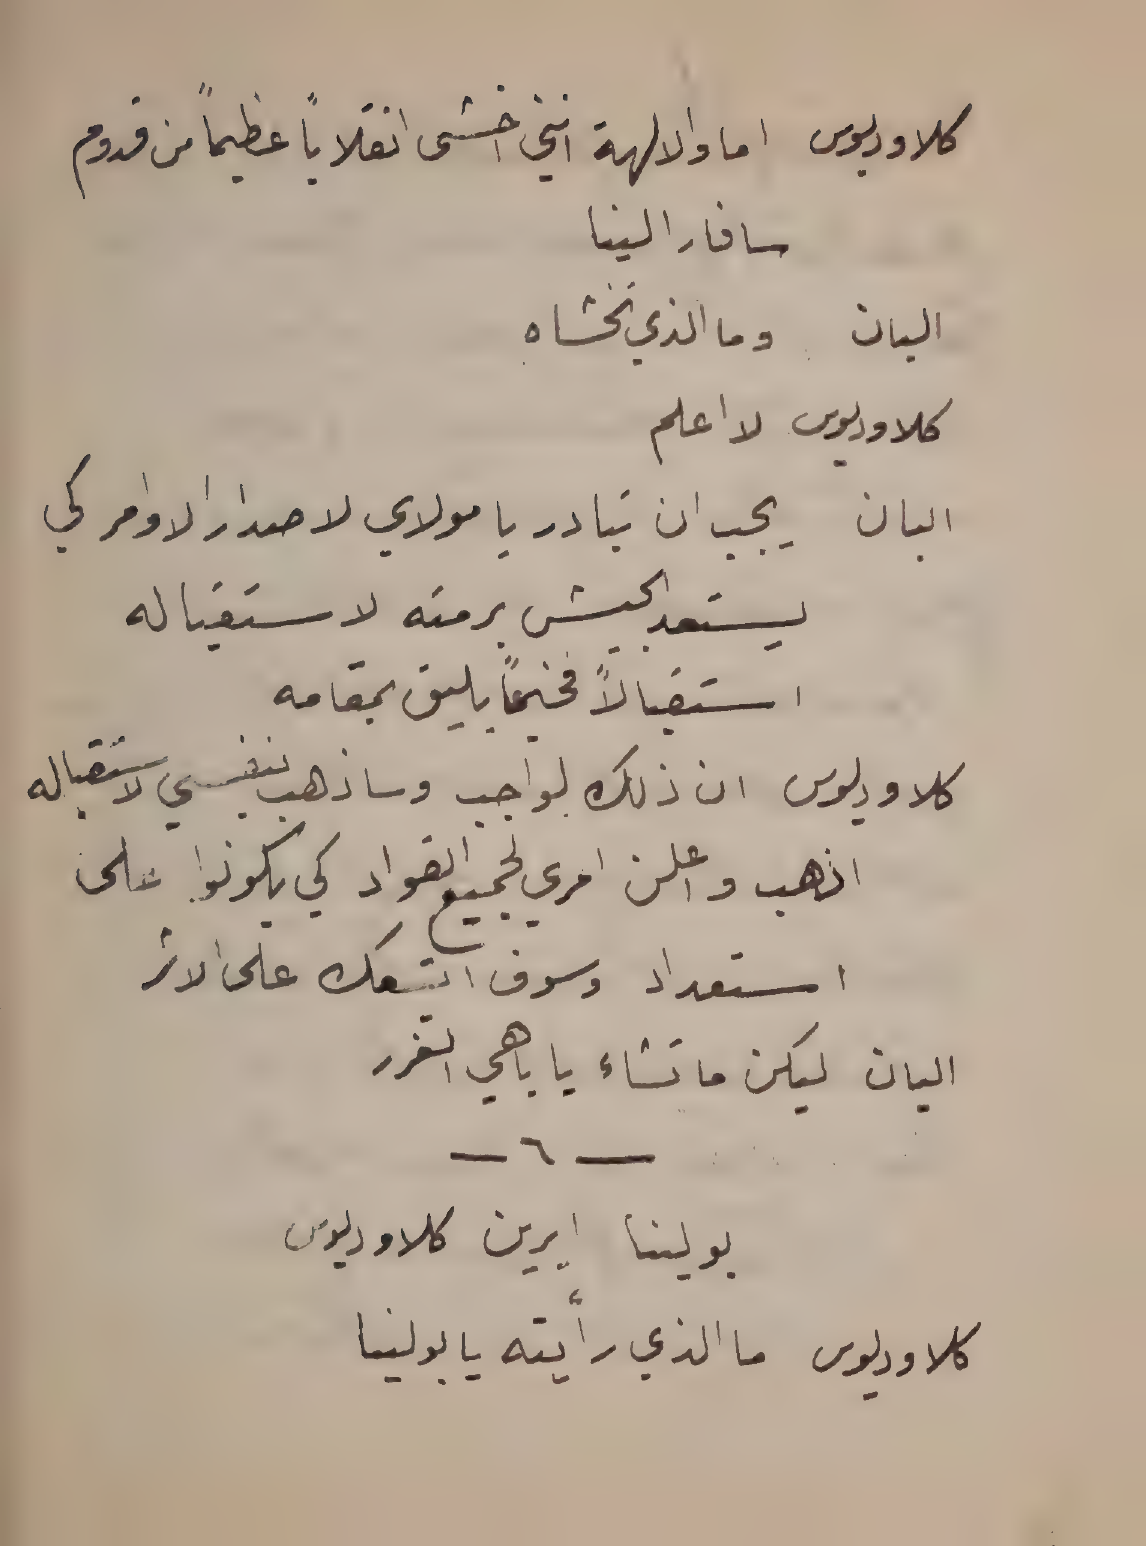 كلاوديوس اما والالهة انني اخشى انقلاباً عظيماً من قدوم
سافار الينا
اليان وما الذي تخشاه
كلاوديوس لا اعلم
اليان يجب ان تبادر يا مولاي لاصدار الاوامر كي
يستعد الجيش برمته لاستقباله
استقبالاً فخيماً يليق بمقامه
كلاوديوس ان ذلك لواجب وساذهب بنفسي لاستقباله
اذهب واعلن امري لجميع القواد كي يكونوا على
استعداد وسوف اتبعك على الاثر
اليان ليكن ما تشاء يا باهي الغرر
— ٦ —
بولينا ايرين كلاوديوس
كلاوديوس ما الذي رأيته يا بولينا